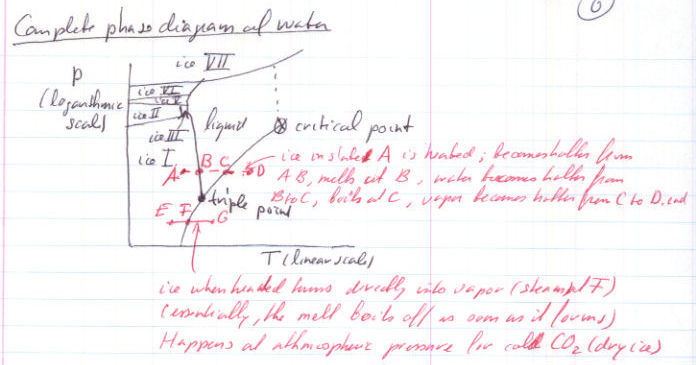 6
Complete phase diagram of water
ice VII
P
(logarithmic
scale)
ice VI
ice V
ice II
liquid
critical point
ice III
ice I
A B C D
ice in state A is heated; becomes hotter from
A B, melts at B, water becomes hotter from
B to C, boils at C, vapor becomes hotter from C to D, and
triple point
E F G
T (linear scale)
ice when heated turns directly into vapor (steam at F)
(essentially, the melt boils off as soon as it forms)
Happens at athmospheric pressure for cold CO2 (dry ice)